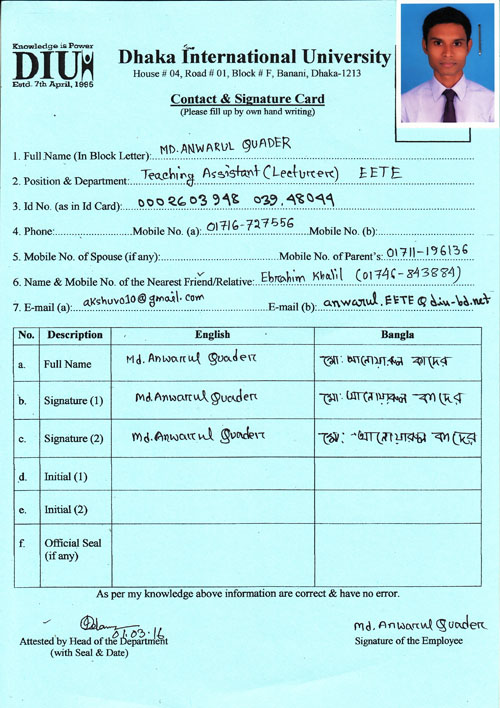 Knowledge is Power
DIU
Estd. 7th April, 1995
Dhaka International University
House # 04, Road # 01, Block # F, Banani, Dhaka-1213
Contact & Signature Card
(Please fill up by own hand writing)
1. Full Name (In Block Letter): MD. ANWARUL QUADER
2. Position & Department: Teaching Assistant (Lecturer) EETE
3. Id No. (as in Id Card): 0002603948 039.48044
4. Phone: Mobile No. (a): 01716-727556 Mobile No. (b):
5. Mobile No. of Spouse (if any): Mobile No. of Parent's: 01711-196136
6. Name & Mobile No. of the Nearest Friend/Relative: Ebrahim Khalil (01746-843884)
7. E-mail (a): akshuvo10@gmail.com E-mail (b): anwarul.EETE@diu-bd.net
No. Description English Bangla
a. Full Name Md. Anwarul Quader মো: আনোয়ারুল কাদের
b. Signature (1) Md. Anwarul Quader মো: আনোয়ারুল কাদের
c. Signature (2) Md. Anwarul Quader মো: আনোয়ারুল কাদের
d. Initial (1)
e. Initial (2)
f. Official Seal
(if any)
As per my knowledge above information are correct & have no error.
01.03.16 Md. Anwarul Quader
Attested by Head of the Department Signature of the Employee
(with Seal & Date)